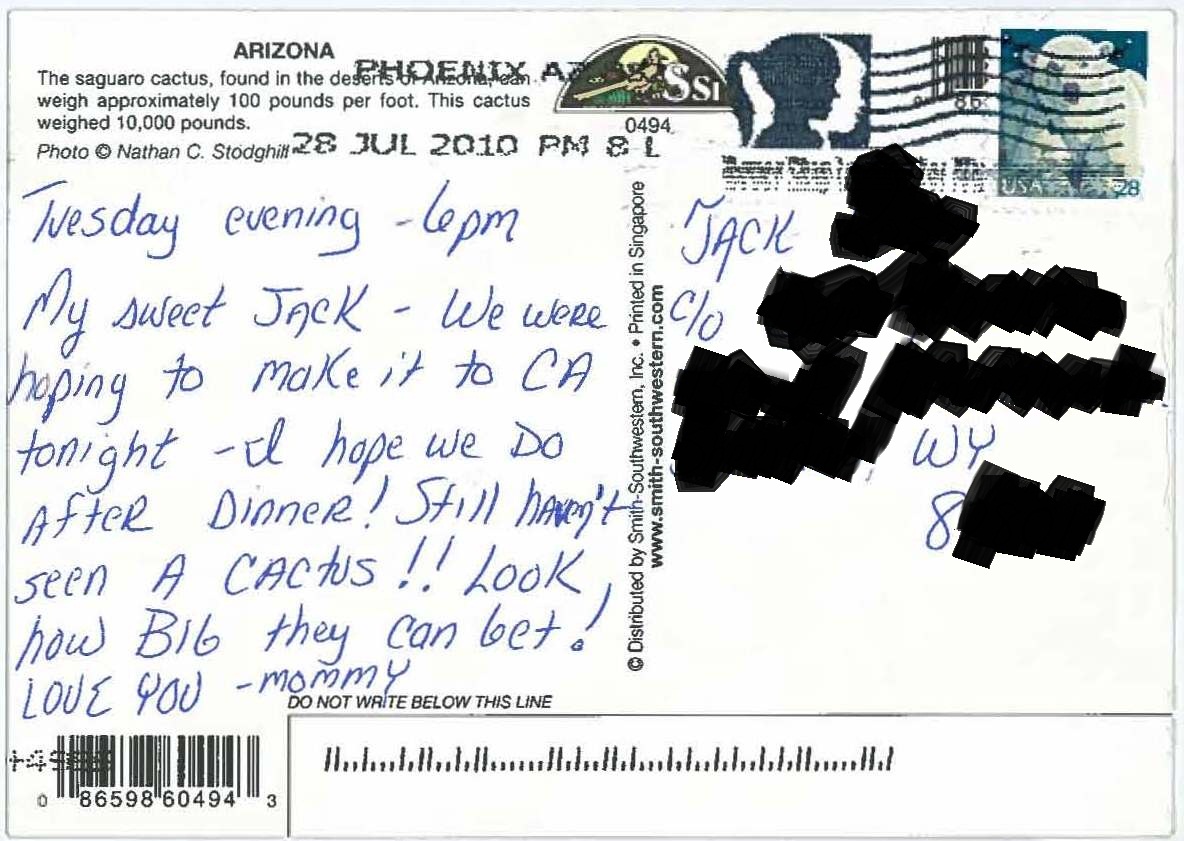 ARIZONA
The saguaro cactus, found in the deserts of Arizona, can
weigh approximately 100 pounds per foot. This cactus
weighed 10,000 pounds.
Photo © Nathan C. Stodghill
PHOENIX AZ
28 JUL 2010 PM 8 L
SSI
0494
USA 28
Tuesday evening - 6pm
My sweet JACK - We were
hoping to make it to CA
tonight - I hope we DO
AfteR DinneR! Still haven't
seen A CActus!! Look
how BIG they can Get!
LOVE YOU - mommy
© Distributed by Smith-Southwestern, Inc. • Printed in Singapore
www.smith-southwestern.com
JACK
c/o
WY
8
DO NOT WRITE BELOW THIS LINE
0 86598 60494 3